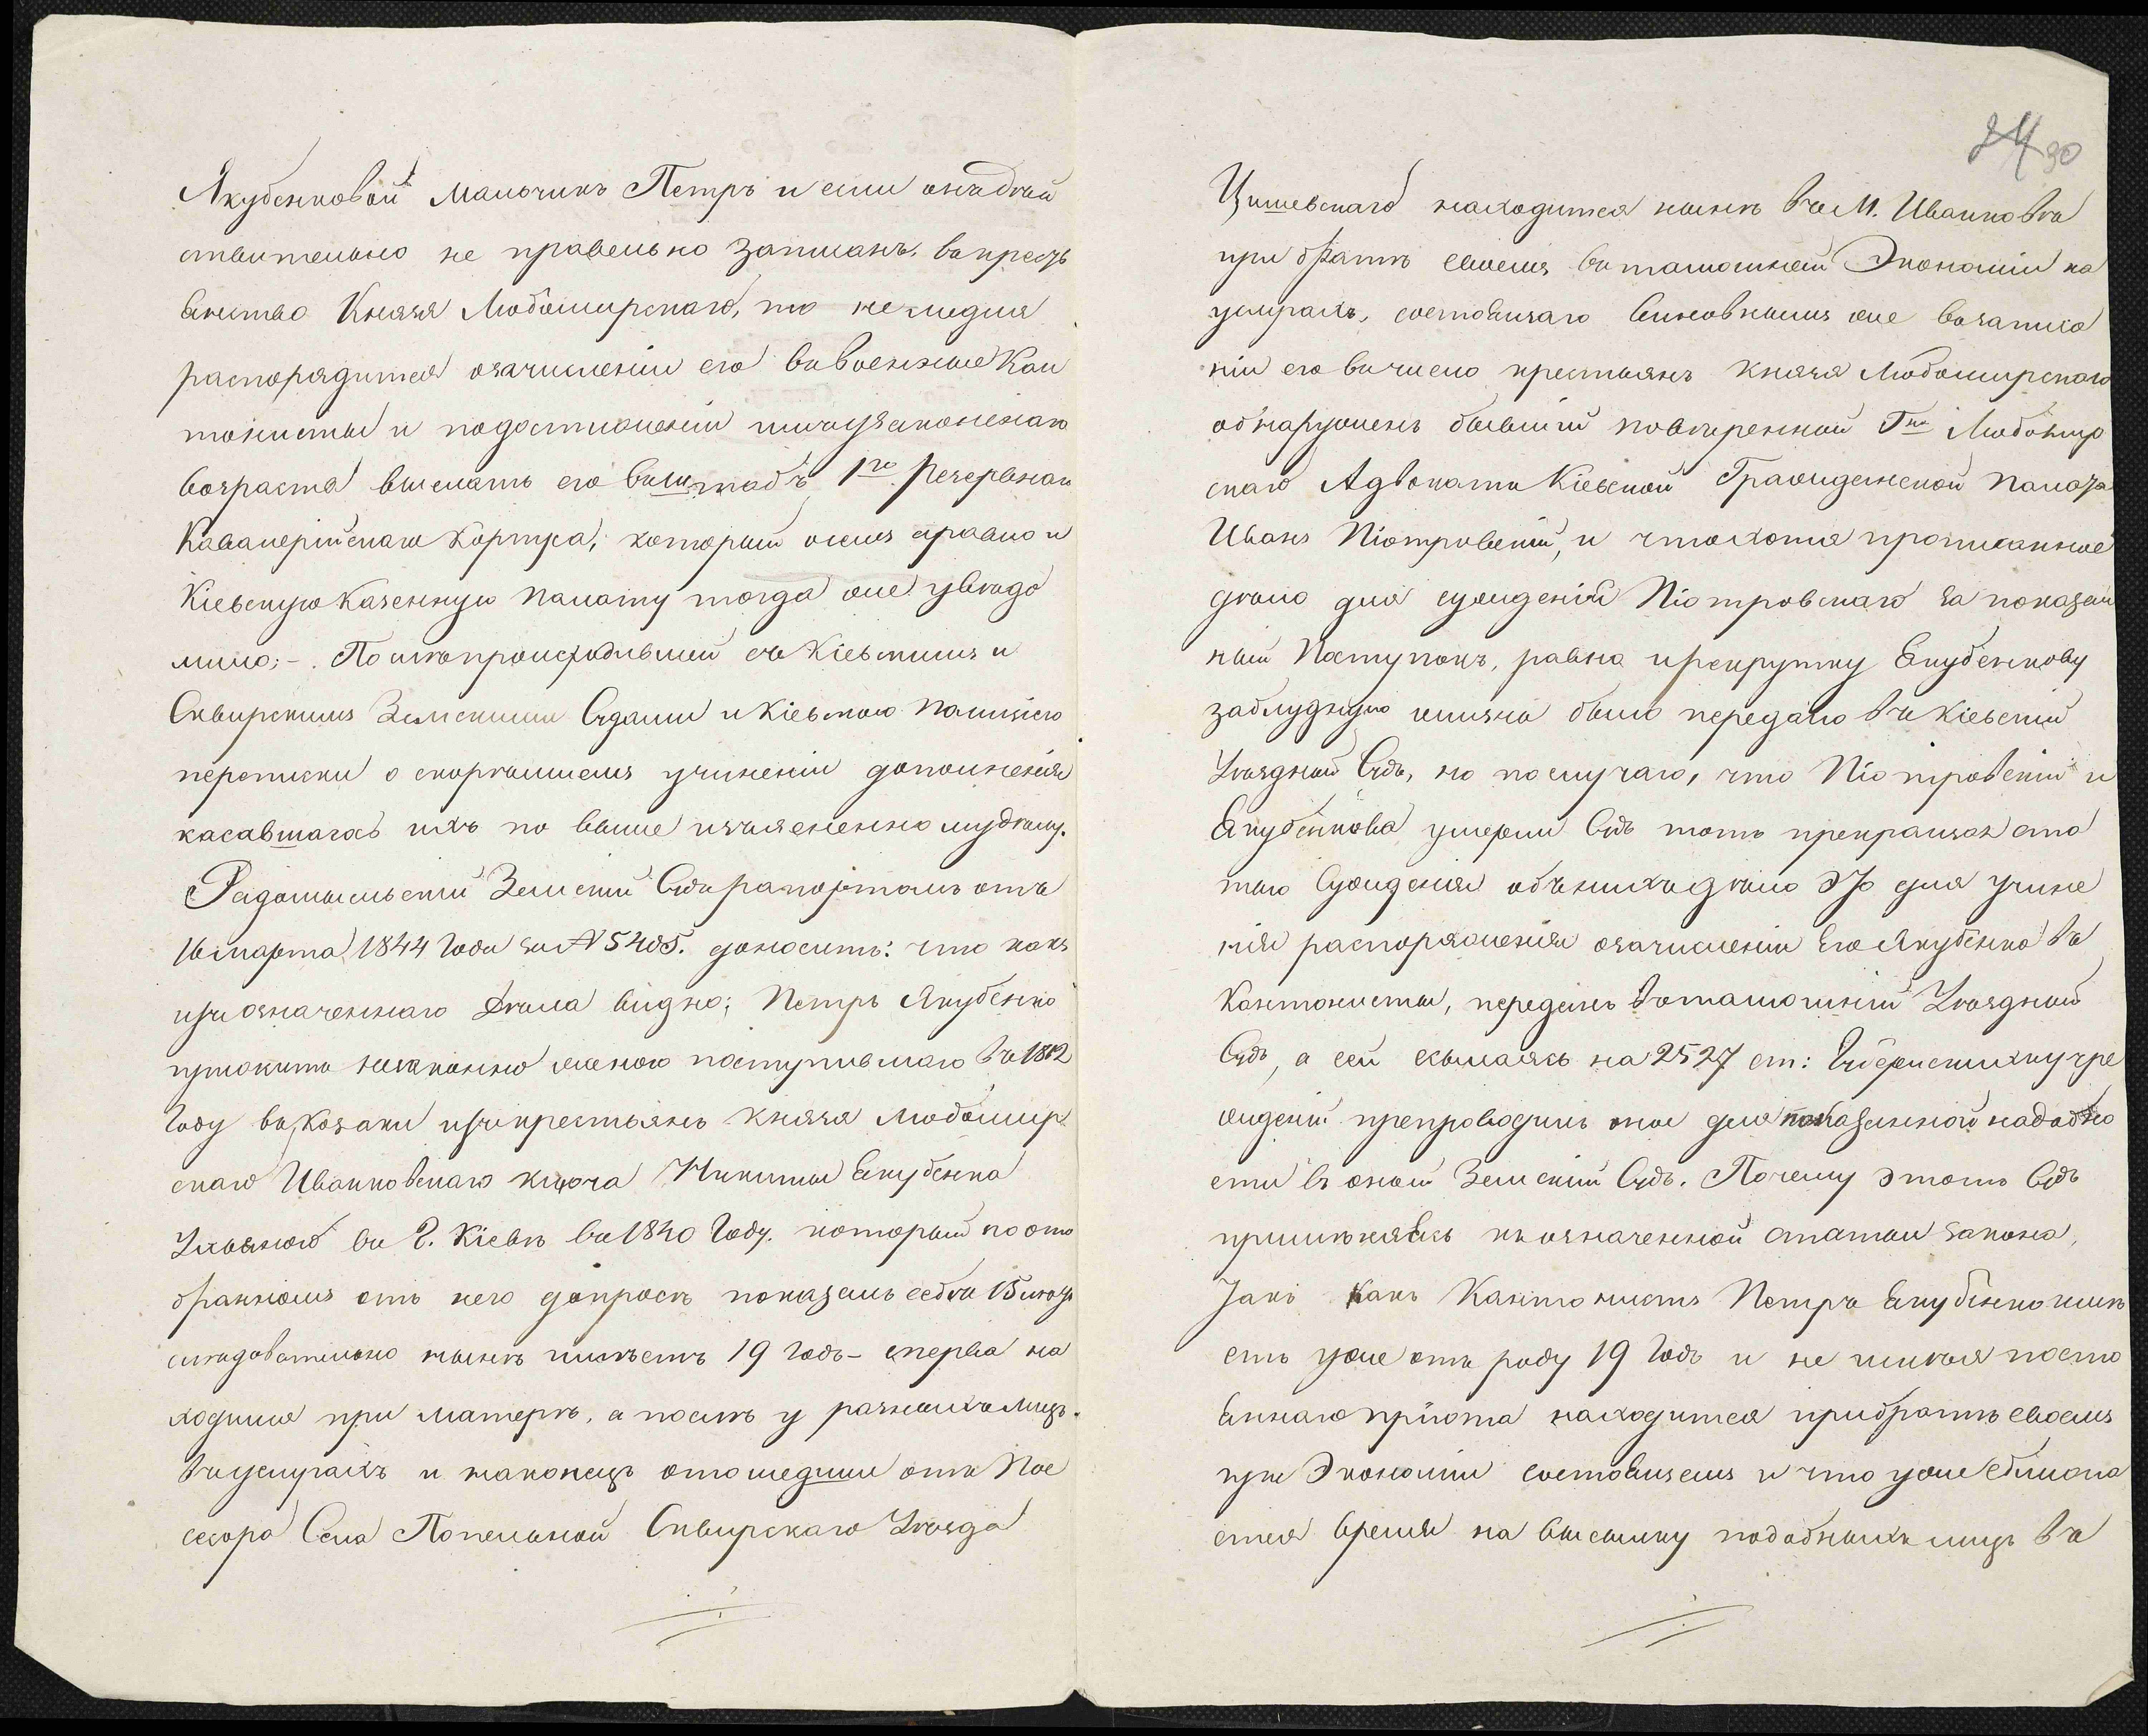 Якубенковой мальчикъ Петръ и если онъ дѣй
ствительно не правельно записанъ въ крестъ
янство Князя Любомирскаго, то не медля
распорядится озачисленіи его въ военные Кан
тонисты и подостиженіи имъ узаконенаго
возраста выслать его въ штабъ 1го Резервнаго
Кавалерійскаго Корпуса; который о семъ *равно и
Кіевскую Казенную Палату тогда же увѣдо
мило;-. По происходившей съ Кіевскимъ и
Сквирскимъ Земскими Судами и Кіевскою Полиціею
переписки о скорѣйшемъ учиненіи дополненія
касавшагось ихъ по выше изъясненному
Радомысльскій Земскій Судъ рапортомъ отъ
16 марта 1844 года за № 5405. доноситъ: что какъ
изъ означеннаго дѣла видно; Петръ Якубенко
прижитъ законною женою поступившаго въ 1812
году въ козаки изъ крестьянъ Князя Любомир
скаго Иванковскаго ключа Никиты Якубенка
Ульяною въ г. Кіевѣ въ 1840 году. который по ото
бранномъ отъ него допросѣ показалъ себѣ 15 лѣтъ
слѣдовательно нынѣ имѣетъ 19 годъ - сперва на
ходился при матерѣ, а послѣ у разныхъ лицъ.
въ услугахъ и наконецъ отошедши отъ Пос
сесора Села Попельной Сквирскаго Уѣзда
24 30
Цишевскаго находится нынѣ въ М. Иванковѣ
при братѣ своемъ въ тамошней Экономіи на
услугахъ, состоящаго виновнымъ же
ніи его въ число крестьянъ Князя Любомирскаго
обнаруженъ бывшій повѣренной Гна Любомир
скаго Адвокатъ Кіевской Гражданской Палаты
Иванъ Піотровскій, и что хотя прописанное
дѣло для сужденія Піотровскаго за показан
ный Поступокъ, равно и рекрутку Якубенкову
заблудную жизнь было передано въ Кіевскій
Уѣздный Судъ, но по случаю, что Піотровскій и
Якубенкова умерли Судъ тотъ прекращая ста
тью Сужденія объ нихъ дѣло это для учине
нія распоряженія озачисленіи Его Якубенко въ
Кантонисты, передалъ въ тамошній Уѣздный
Судъ, а сей ссылаясь на 2527 ст: Губернскихъ учре
жденій препроводилъ оное для показанной надобно
сти въ оный Земскій Судъ. Почему этотъ Судъ
примѣняясь къ означенной статьи закона,
Такъ какъ Кантонистъ Петръ Якубенко имѣ
етъ уже отъ роду 19 годъ и не имѣя посто
яннаго пріюта находится при братѣ своемъ
при Экономіи состоящемъ и что уже сближа
ется время на высылку подобныхъ лицъ въ